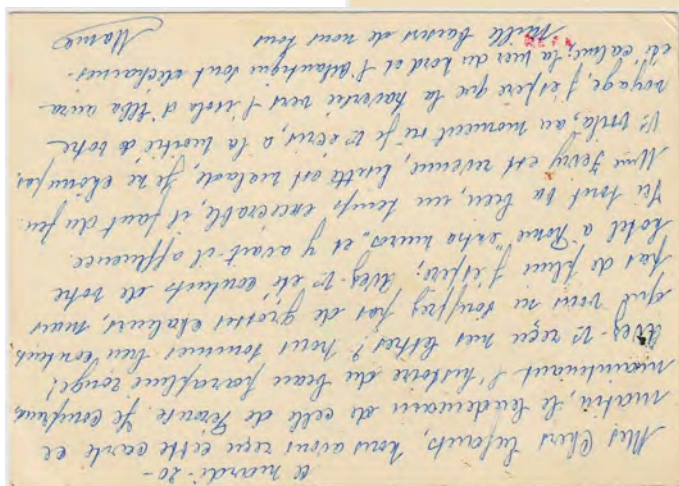 ce mardi-20-
Mes Chers Enfants, nous avons reçu cette carte ce
matin, le lendemain de celle de Florence. Je comprends
maintenant l'histoire du beau parapluie rouge!
Avez-vs reçu nos lettres? nous sommes bien contents
que vous ne souffrez pas de grosses chaleurs, mais
pas de pluie j'espère; Avez-vs été contents de votre
hotel a Rome "extra muros" et y avait-il affluence.
Ici tout va bien, un temps exécrable, il faut du feu
Mme Jerry est revenue, est malade, Je ne chôme pas,
Vs voilà, au moment où je vs écris, a la moitié de votre
voyage, j'espère que la traversée vers l'isola d'Elba aura
été calme; la mer du Nord et l'Atlantique sont déchainés.
Mille baisers de nous tous
Mamie